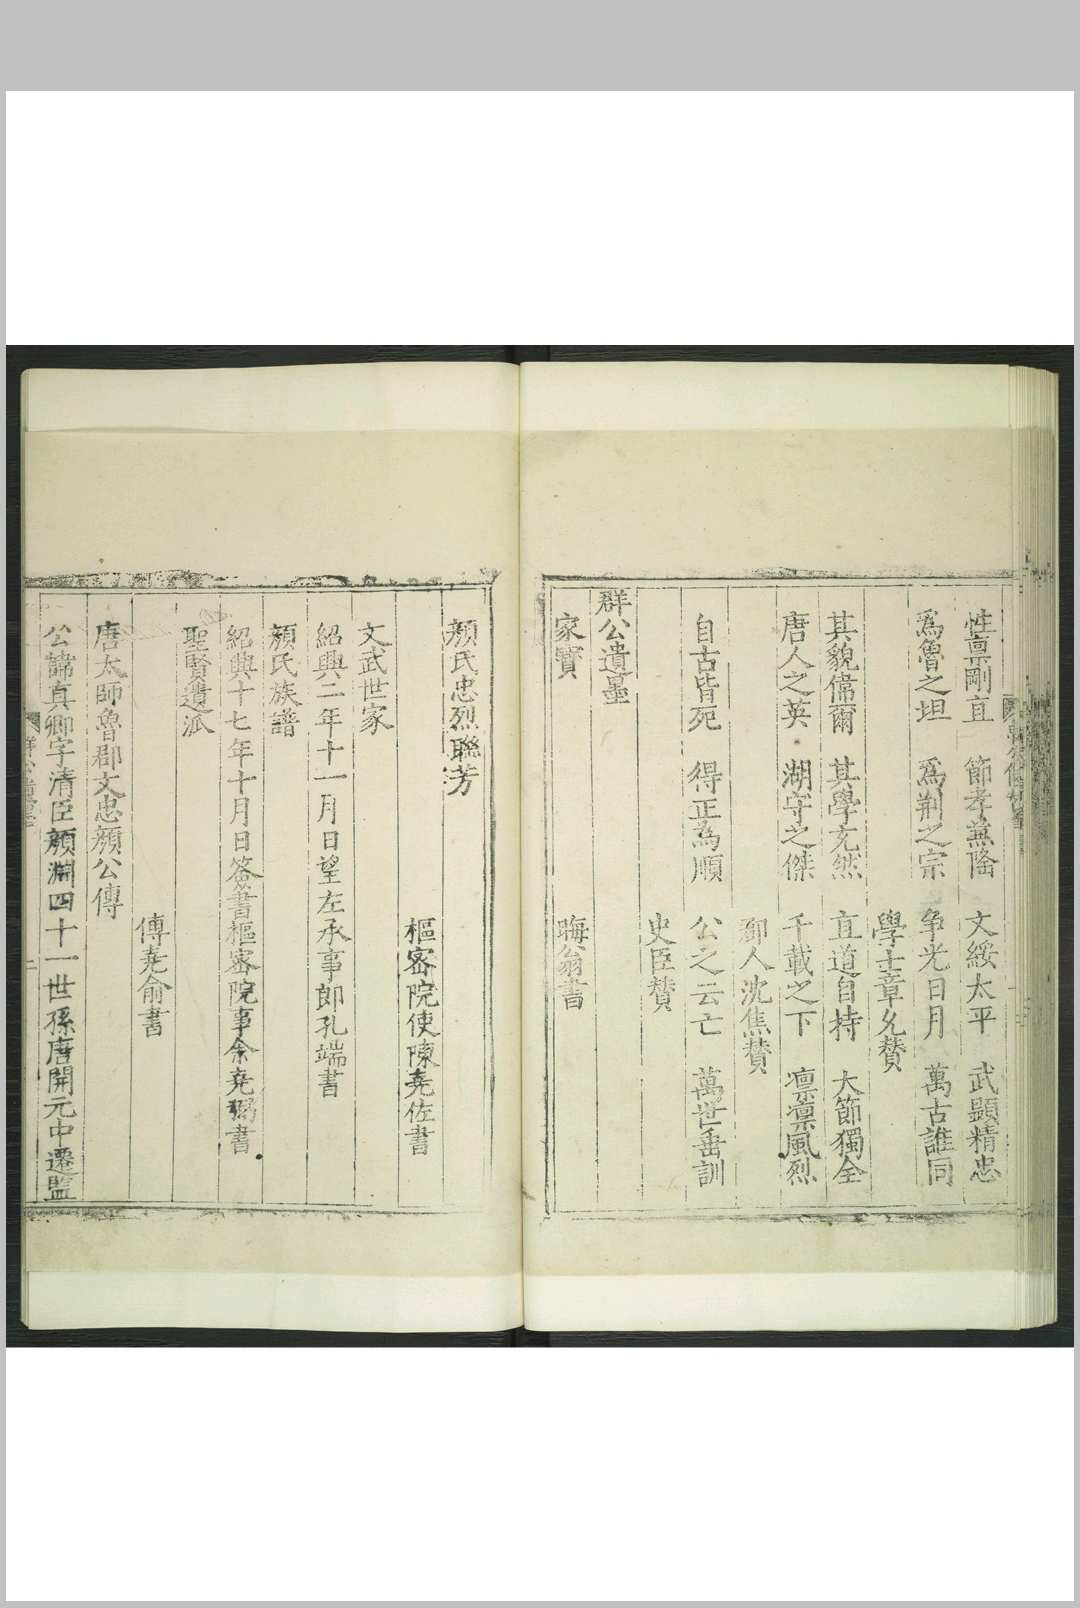 性禀剛直　節孝兼隆　文綏太平　武顯精忠
為魯之坦　為荆之宗　争光日月　萬古誰同
學士章乂贊
其貌偉爾　其學充然　直道自持　大節獨全
唐人之英　湖守之傑　千載之下　凛凛風烈
御人沈焦贊
自古皆死　得正為順　公之云亡　萬世垂訓
史臣贊
群公遺墨
家寳　晦翁書
顔氏忠烈聯芳
樞密院使陳堯佐書
文武世家
紹興二年十一月日望左承事郎孔端書
顔氏族譜
紹興十七年十月日簽書樞密院事余堯弼書
聖賢遺派
傅堯俞書
唐太師魯郡文忠顔公傳
公諱真卿字清臣顔淵四十一世孫唐開元中遷監